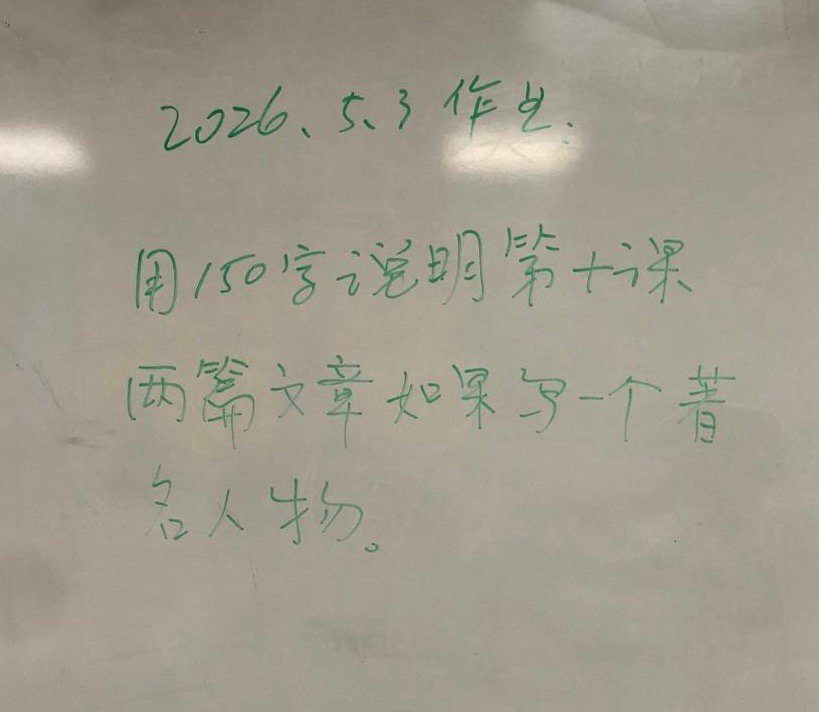 2026、5、3 作业.
用150字说明第十课
两篇文章如果写一个著
名人物。